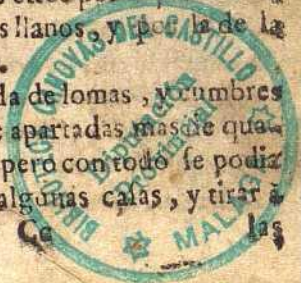 s llanos, y por la de la
da de lomas, y cumbres
apartadas mas de qua-
pero con todo se podia
algunas casas, y tirar à
Cc las
BIBLIOTECA CANOVAS DEL CASTILLO
Diputación
Provincial
MALAGA